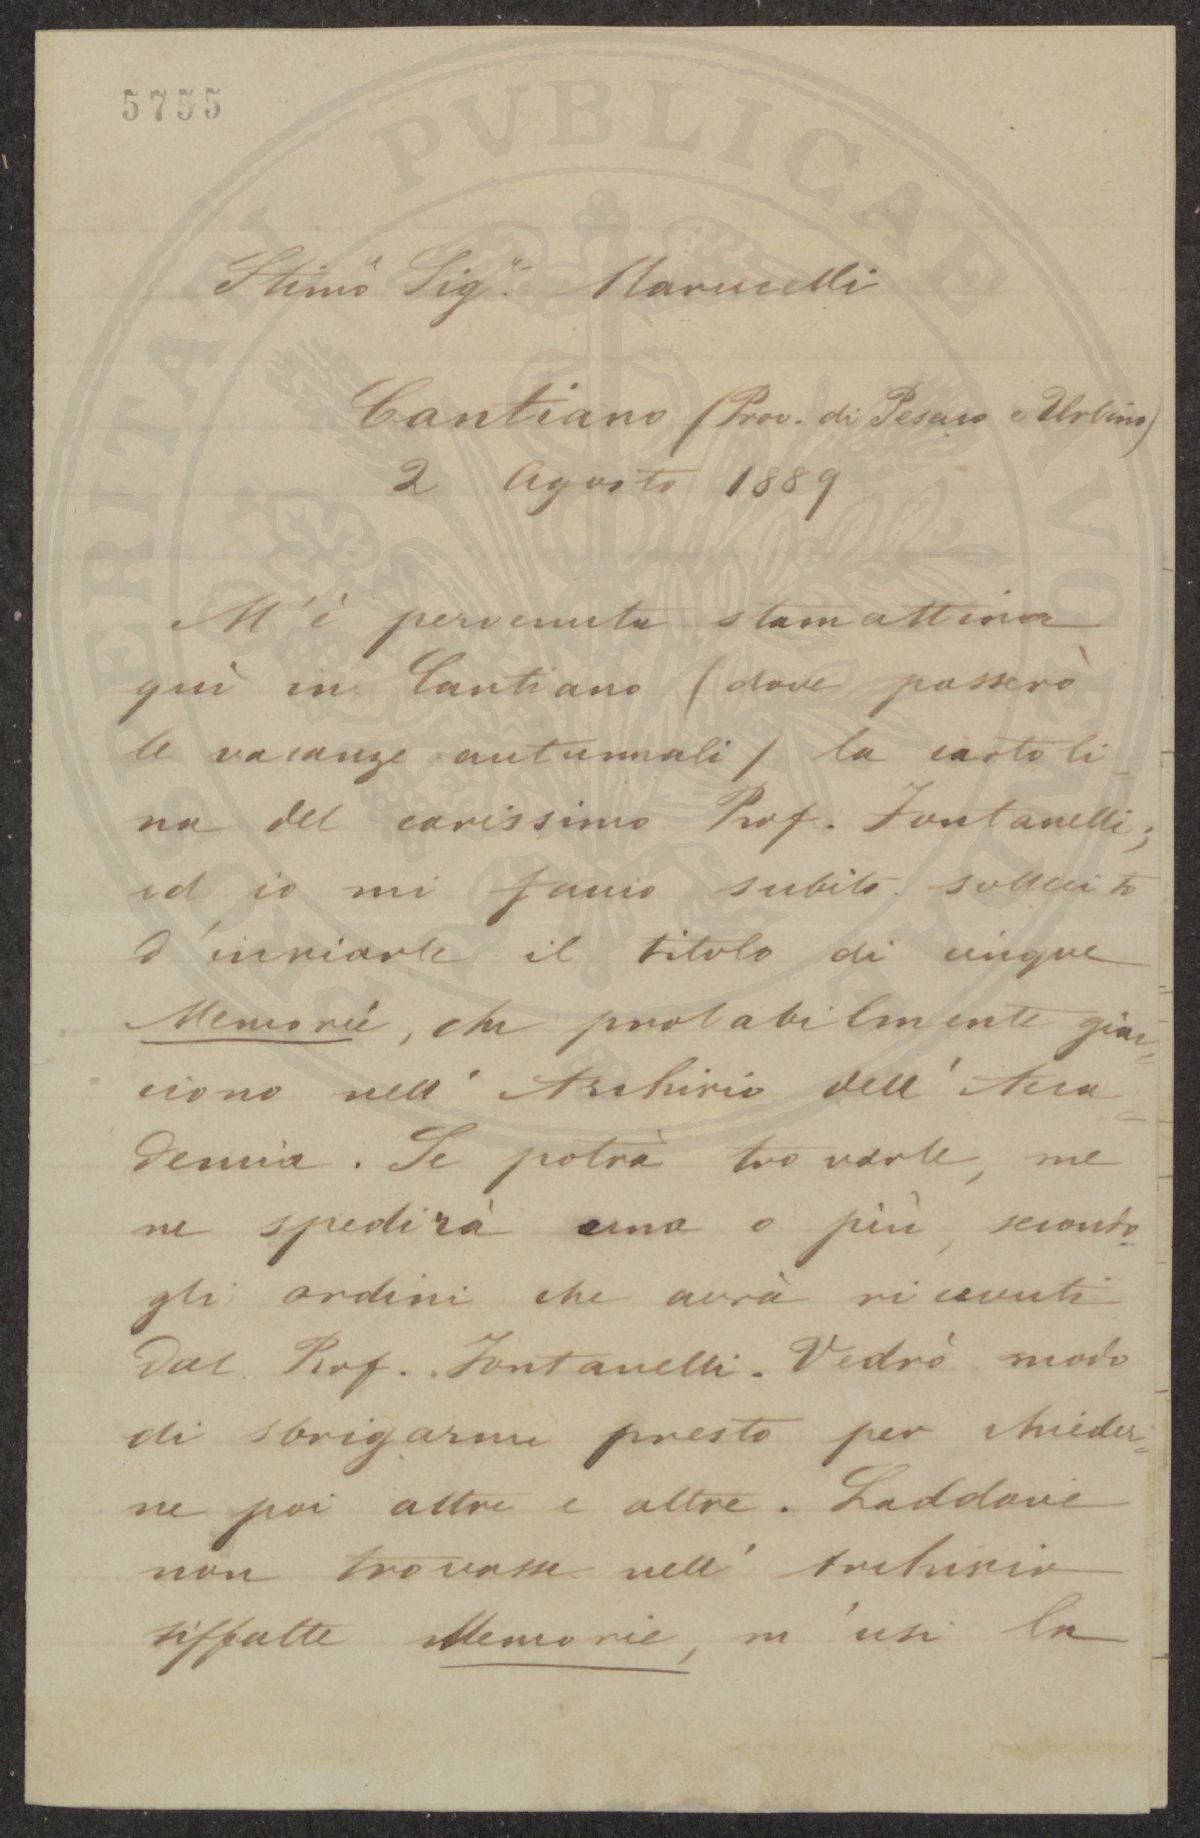 5755
PROSPERITATI PVBLICAE AVGENDAE
Stimo Sigr. Marucelli
Cantiano (Prov. di Pesaro e Urbino)
2 Agosto 1889
M'è pervenuta stamattina
quì in Cantiano (dove passerò
le vacanze autunnali) la cartoli-
na del carissimo Prof. Fontanelli;
ed io mi faccio subito sollecito
d'inviarle il titolo di cinque
Memorie, che probabilmente giac-
ciono nell'Archivio dell'Acca-
demia. Se potrà trovarle, me
ne spedirà una o più, secondo
gli ordini che avrà ricevuti
dal Prof. Fontanelli. Vedrò modo
di sbrigarmi presto per chieder-
ne poi altre e altre. Laddove
non trovasse nell'Archivio
siffatte Memorie, m'usi la